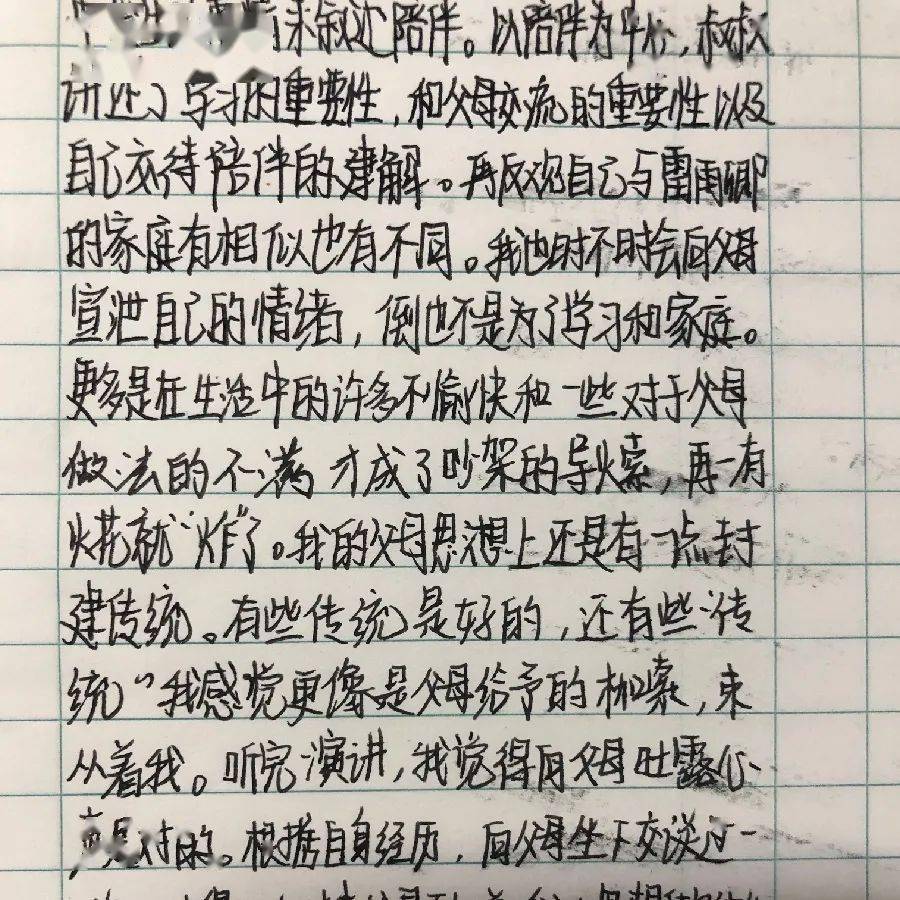 来叙述陪伴。以陪伴为中心，叔叔
讲述了学习的重要性，和父母交流的重要性以及
自己对待陪伴的见解。再反观自己与雷雨卿
的家庭有相似也有不同。我也时不时会向父母
宣泄自己的情绪，倒也不是为了学习和家庭。
更多是在生活中的许多不愉快和一些对于父母
做法的不满才成了吵架的导火索，再一有
火花就“炸”了。我的父母思想上还是有一点封
建传统。有些传统是好的，还有些“传
统”我感觉更像是父母给予的枷锁，束
从着我。听完演讲，我觉得向父母吐露心
是对的。根据自身经历，向父母坐下交谈过一